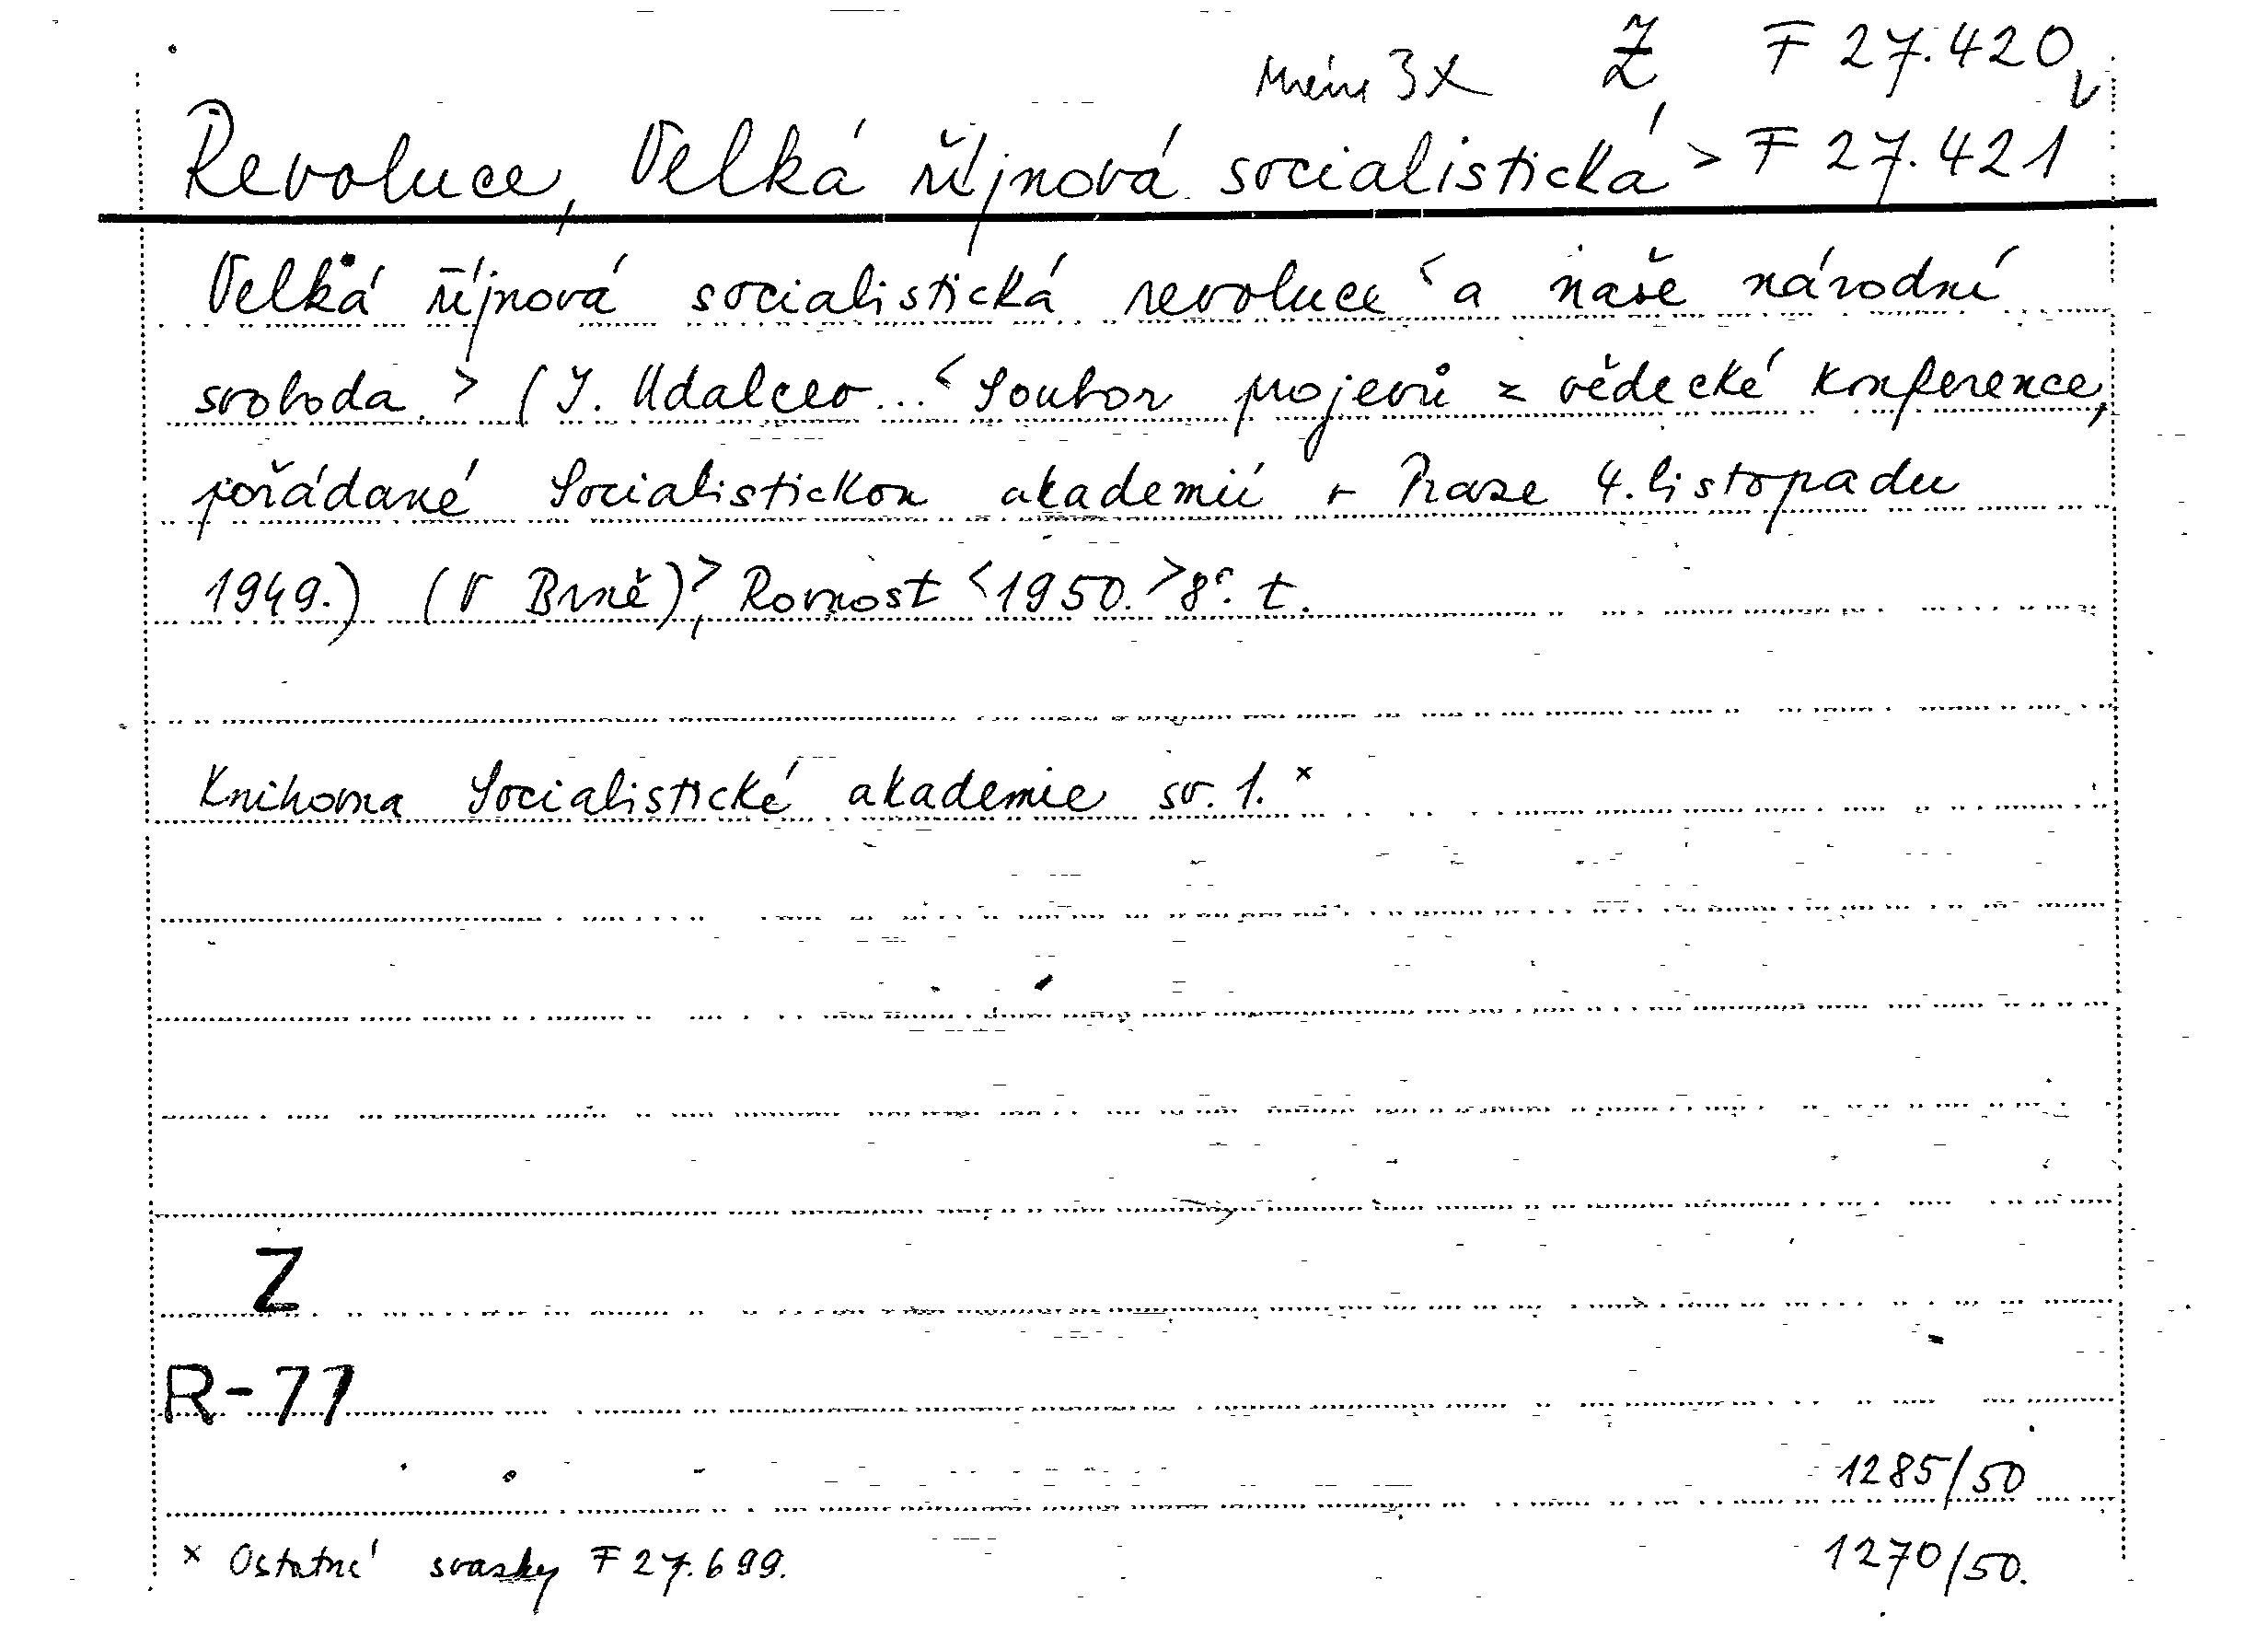 Máme 3x Z F 27.420,
Revoluce, Velká říjnová socialistická > F 27.421
Velká říjnová socialistická revoluce < a naše národní
svoboda. > (I. Udalcev... < Soubor projevů z vědecké konference,
pořádané Socialistickou akademií v Praze 4. listopadu
1949.) (V Brně) >, Rovnost < 1950. > 8°. t.
Knihovna Socialistické akademie sv. 1. x
Z
R-77
1285/50
x Ostatní svazky F 27.699. 1270/50.